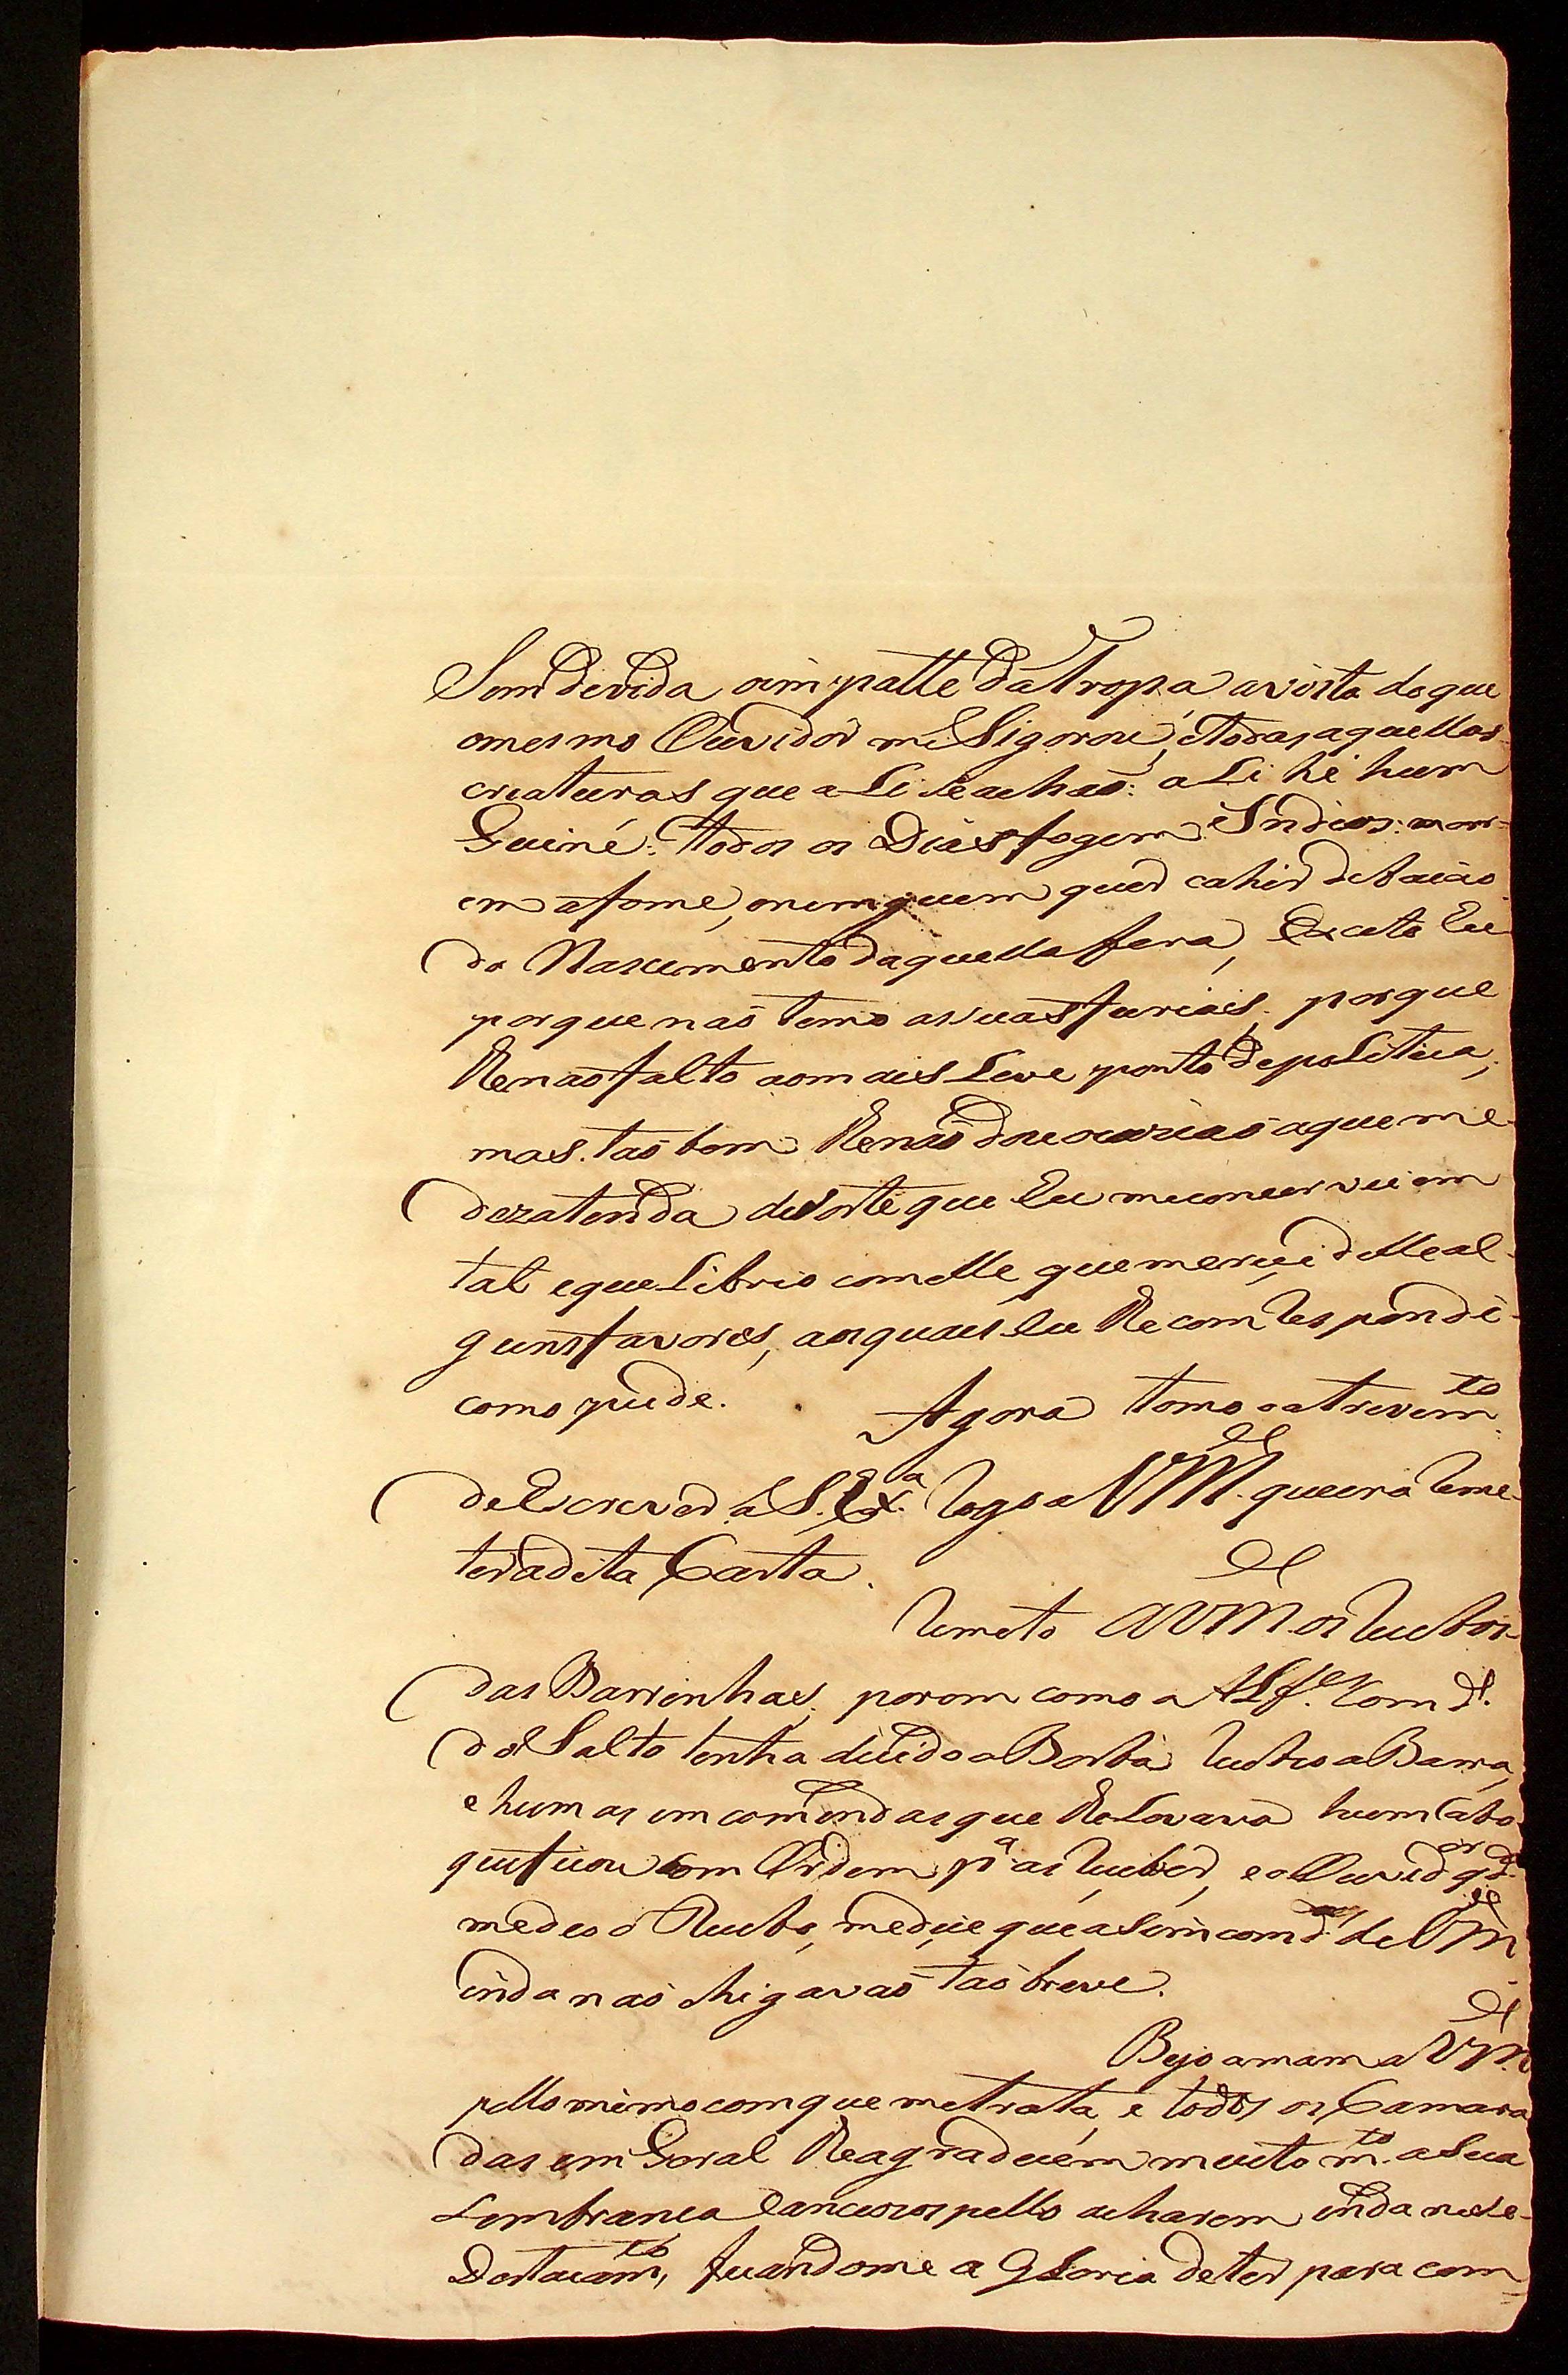 Sem devida oimpatte da Tropa avista do que
omesmo Ouvidor me Sigorou, e todas aquellas
creaturas que aLi se achaõ: aLi he hum
Guiné: todos os Dias fogem Indios: morr-
em afome, e nimguem quer cahir debaixo
do Nascimento daquella fera, Exceto Eu
porque naõ temo as suas furias, porque
lhe naõ falto aomais Leve ponto depoLitica,
mas. taõ bem lhe naõ dou ocaziaõ aque me
dezatenda desorte que Eu meconcervei em
tal equeLibrio comelle, que mereçi delle al-
guns favores, aosquais Eu lhe comrespondi
como pude. Agora tomo oatrevim.to
deEscrever a S. Ex.a Rogo a VM.ce queira Reme-
ter adita Carta.
Remeto a VM.ce os Reçibos
das Barrinhas, porem como o ALf.es Com.de
do Salto tenha
e humas emcomendas que lhe Levava hum Cabo
que ficou com Ordem p.a as Reçeber, e o Ouvid.or q.do
medeo o Reçibo, medice que
inda naõ chigavaõ taõ breve.
Bejo amam a VM.ce
pello mimo comque metrata, e todos os Camara
das em Geral lhe agradecem muito m.to aSua
Lembrança pello acharem inda neste
Destacam.to, ficandome a gLoria deter para com=